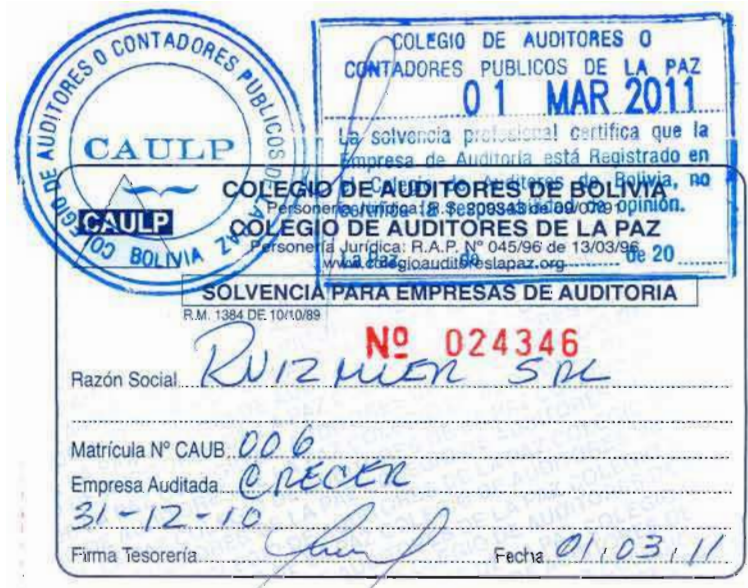 COLEGIO DE AUDITORES O CONTADORES PUBLICOS DE LA PAZ
CAULP
BOLIVIA
COLEGIO DE AUDITORES O
CONTADORES PUBLICOS DE LA PAZ
01 MAR 2011
La solvencia profesional certifica que la
Empresa de Auditoria está Registrado en
Colegio de Auditores de Bolivia, no
opinión.
La Paz de de 20
CAULP
COLEGIO DE AUDITORES DE BOLIVIA
Personería Jurídica: R.S.
COLEGIO DE AUDITORES DE LA PAZ
Personería Jurídica: R.A.P. Nº 045/96 de 13/03/96
www.colegioauditoreslapaz.org
SOLVENCIA PARA EMPRESAS DE AUDITORIA
R.M. 1384 DE 10/10/89
Nº 024346
Razón Social RUIZMIER SRL
Matrícula Nº CAUB 006
Empresa Auditada CRECER
31-12-10
Firma Tesorería Fecha 01/03/11